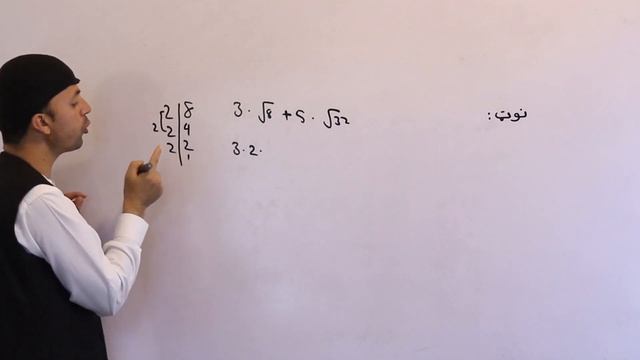 2 | 8
2 | 4
2 | 2
1
2
3 · √8 + 5 · √32
3 · 2 ·
نوټ: